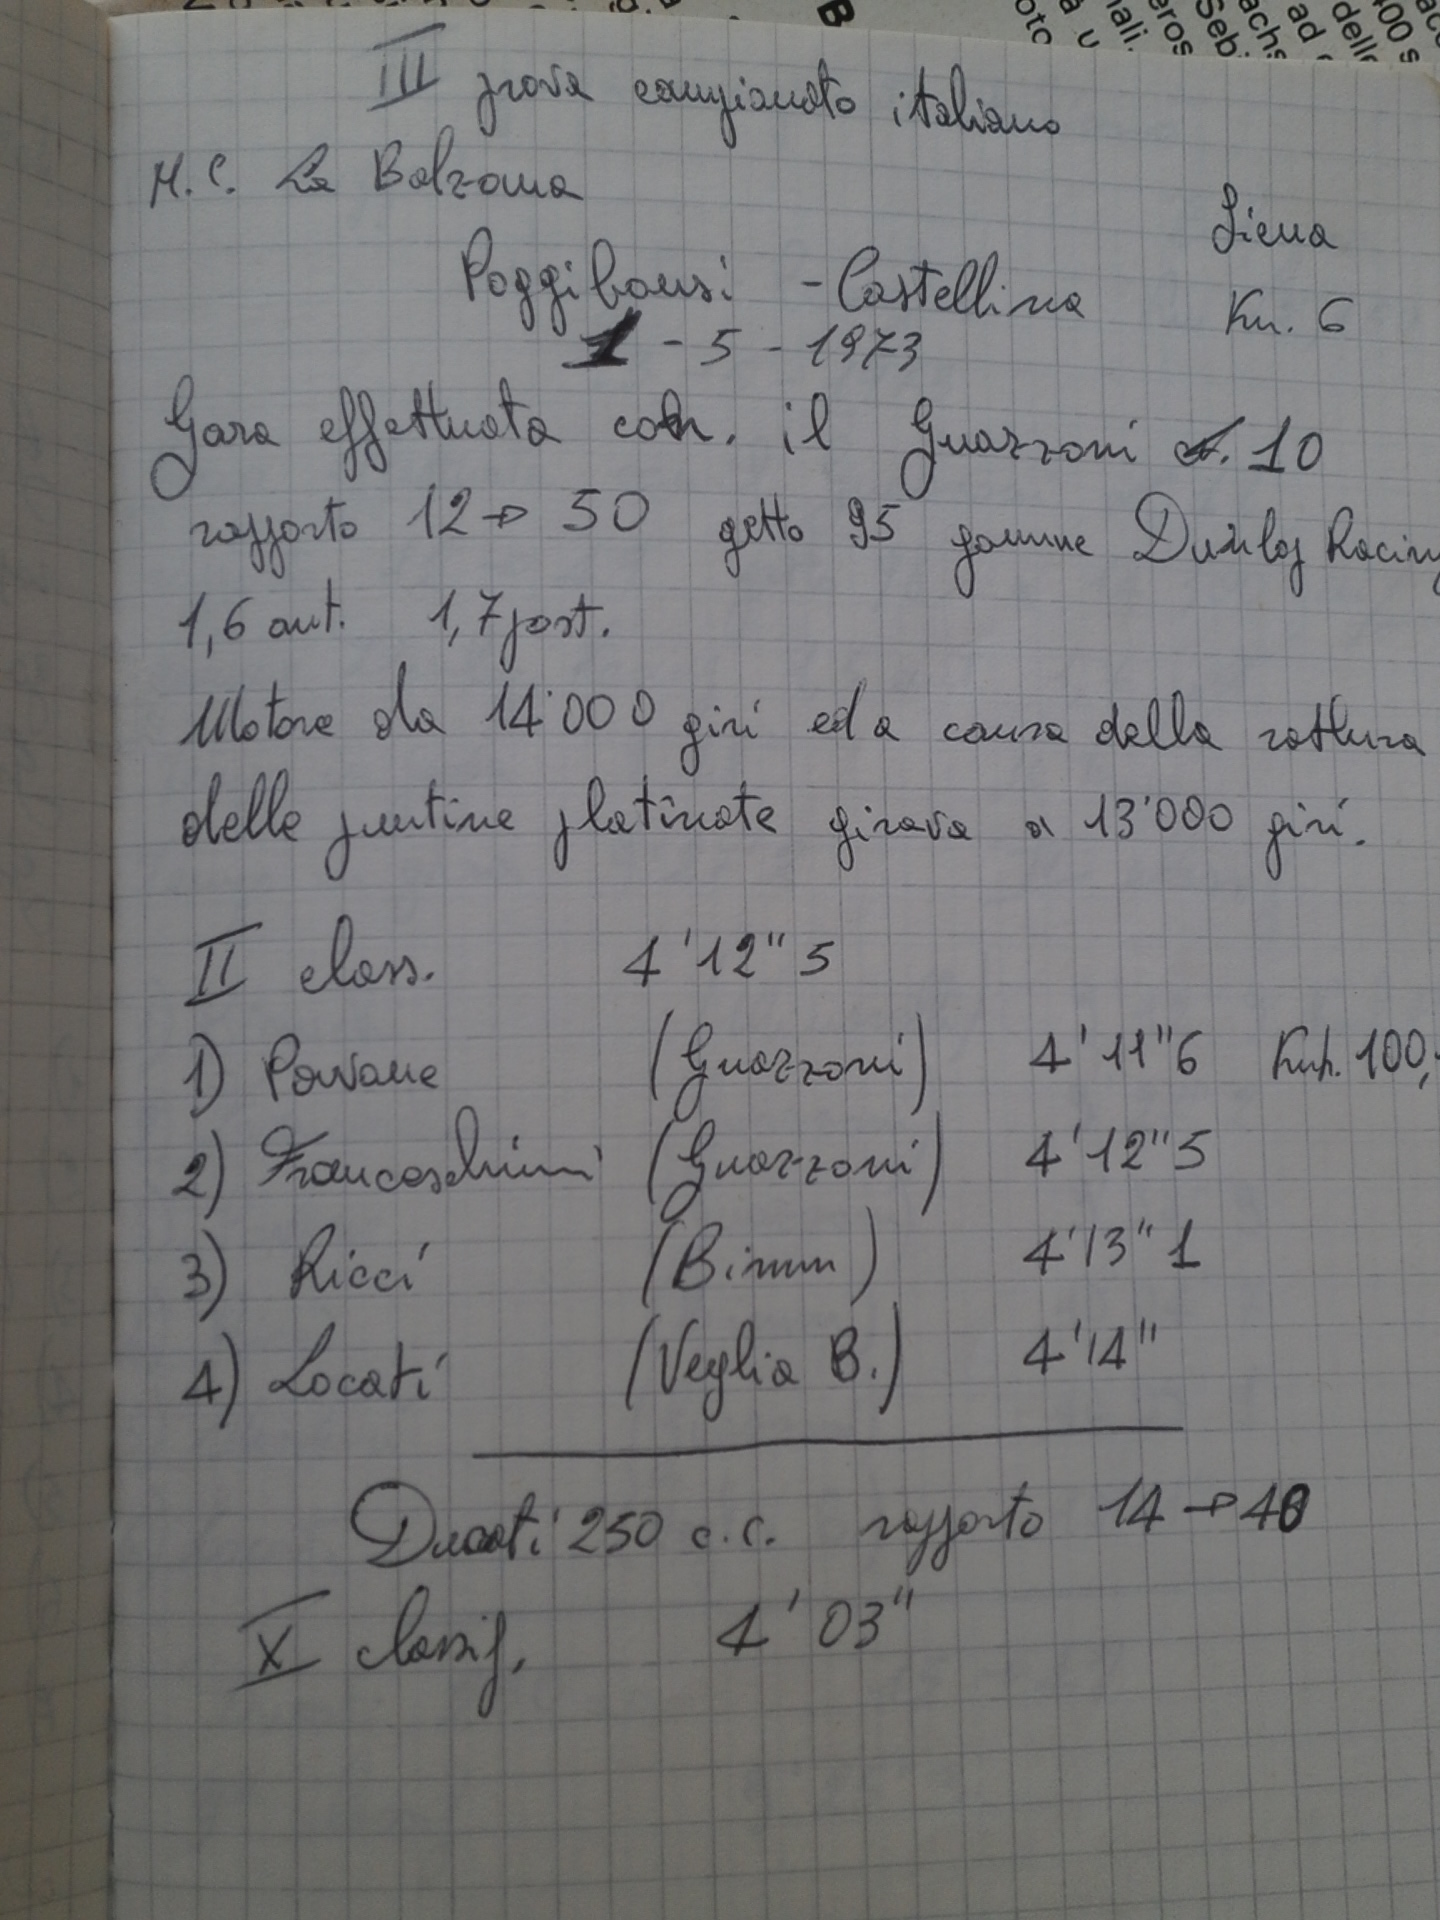 III prova campionato italiano
M.C. La Balzana
Siena
Poggibonsi - Castellina Km. 6
1 - 5 - 1973
Gara effettuata con. il Guazzoni 10
rapporto 12 → 50 getto 95 gomme Dunlop Racing
1,6 ant. 1,7 post.
Motore da 14'000 giri ed a causa della rottura
delle puntine platinate girava a 13'000 giri.
II class. 4'12"5
1) Pavane (Guazzoni) 4'11"6 100,
2) Franceschini (Guazzoni) 4'12"5
3) Ricci (Bimm) 4'13"1
4) Locati (Veglia B.) 4'14"
Ducati 250 c.c. rapporto 14 → 40
X classif. 4'03"